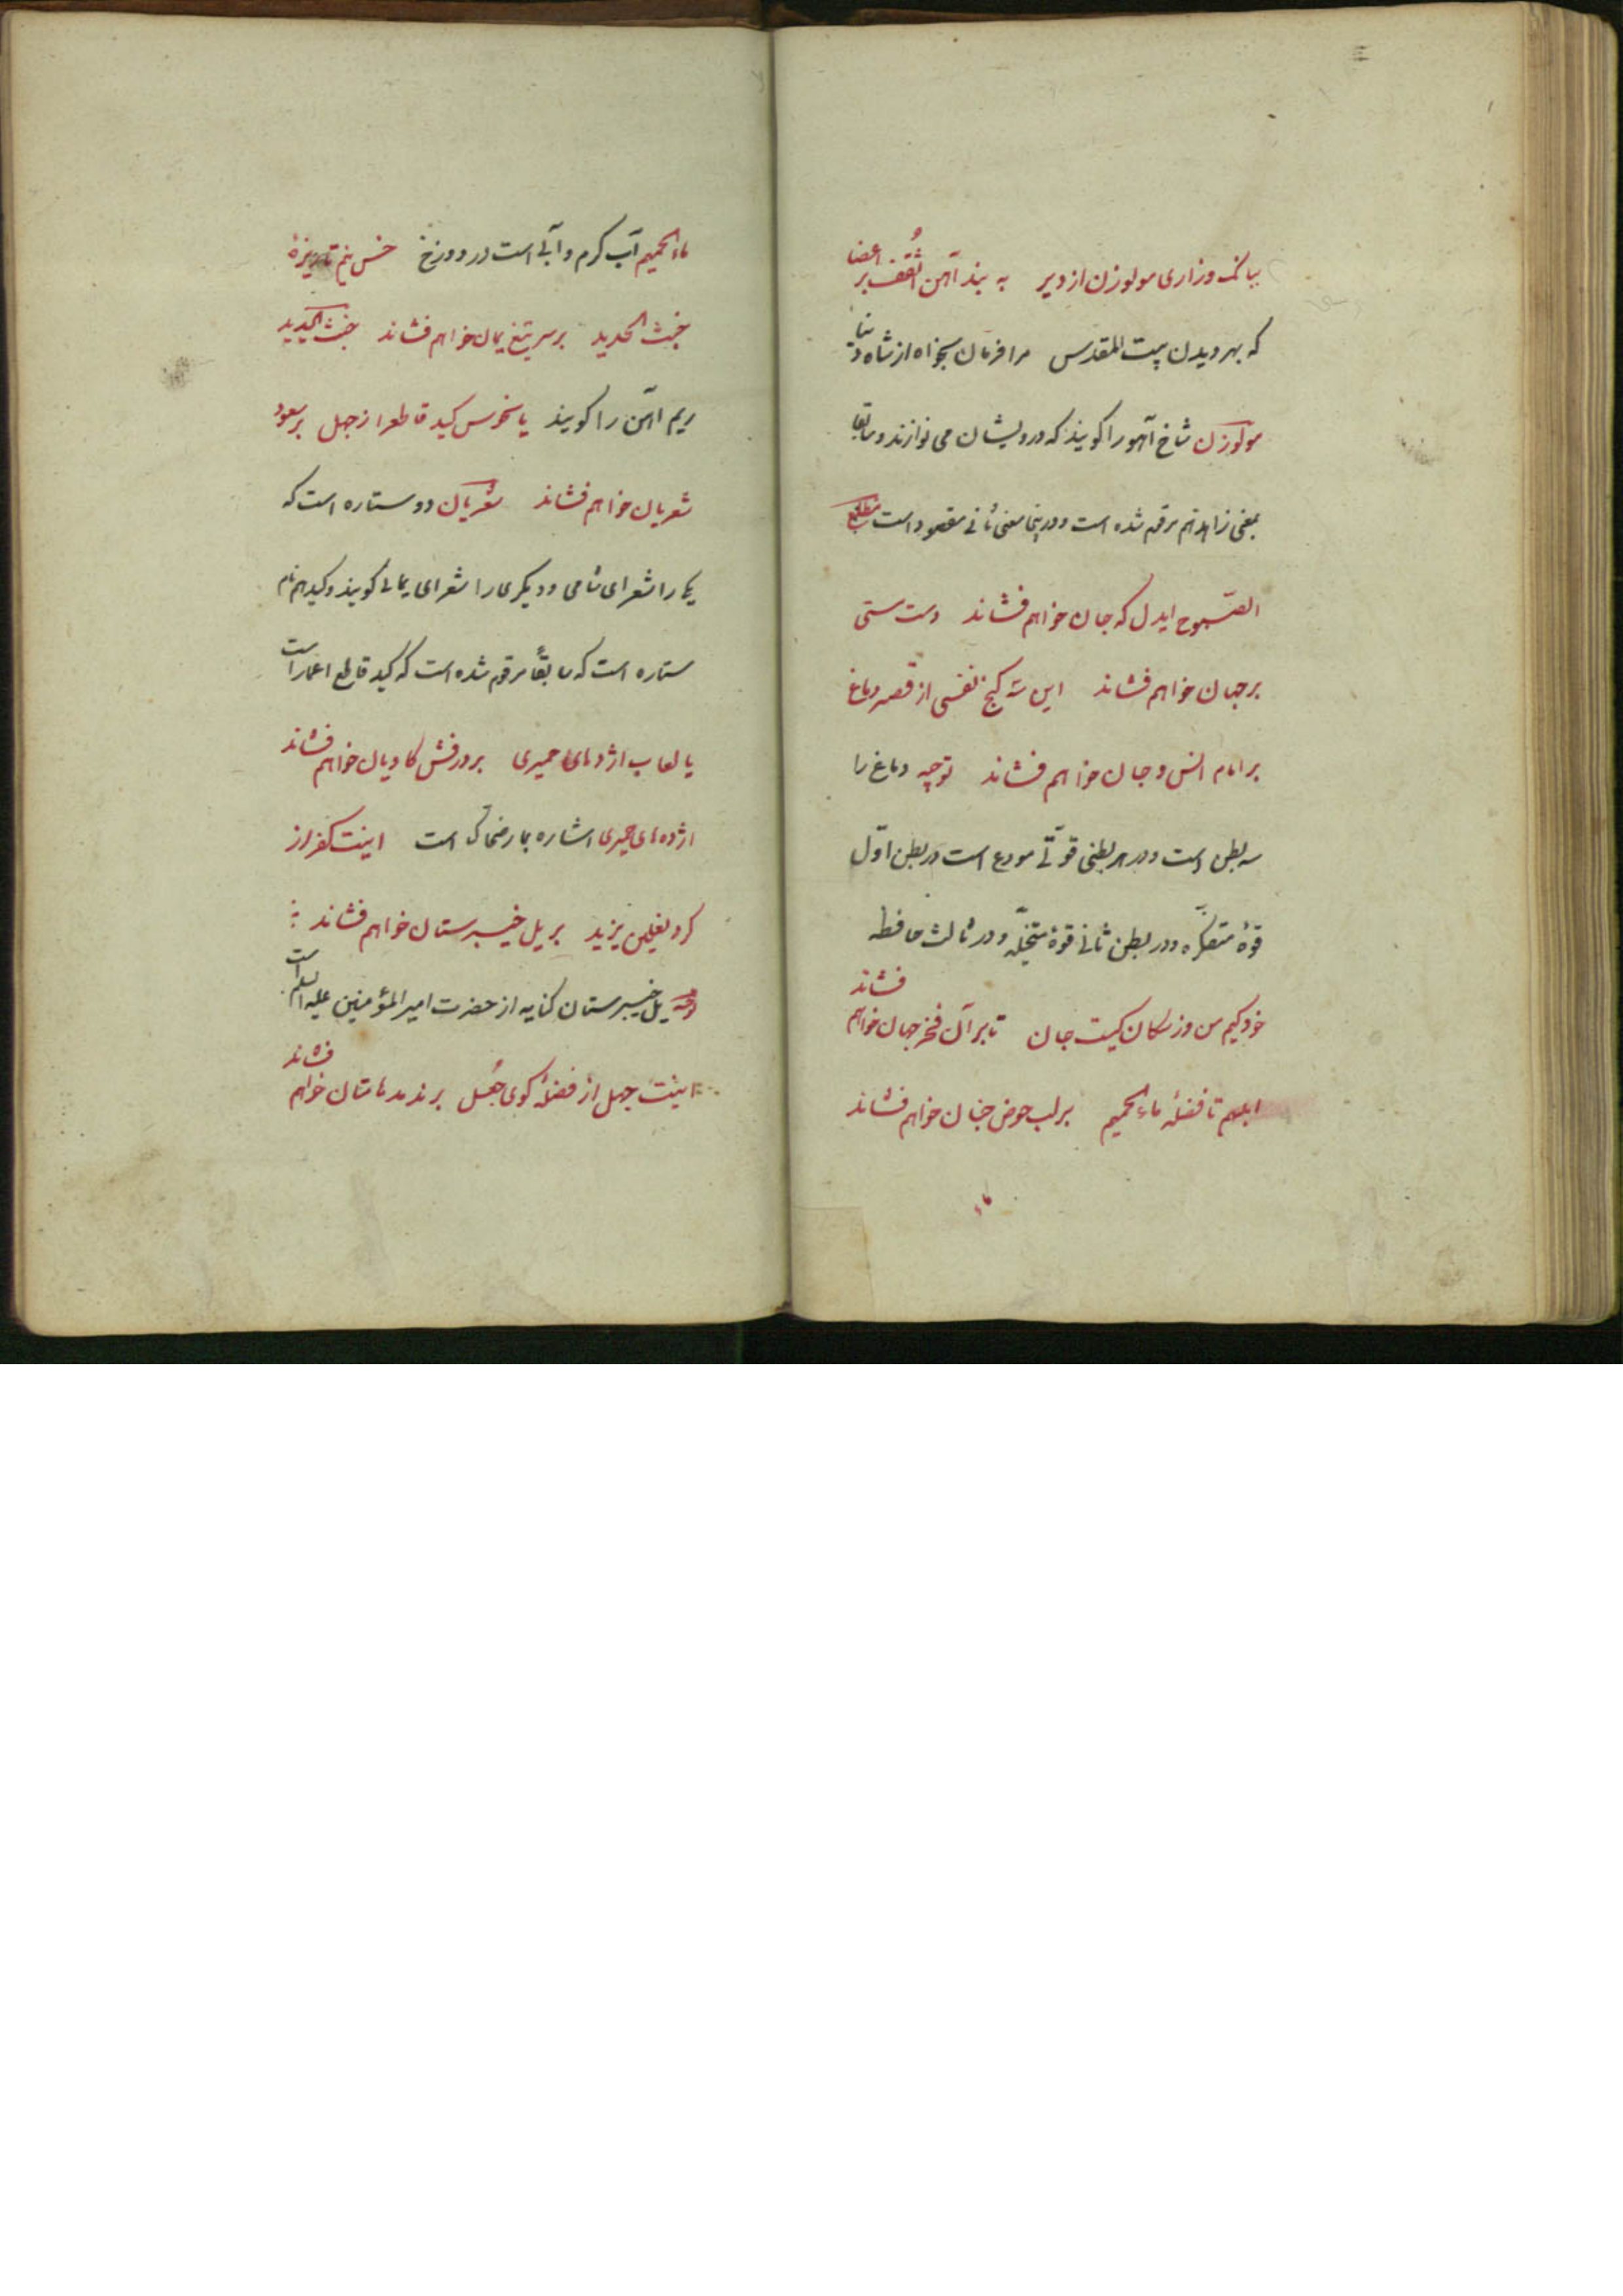 ببانک وزاری مولوزن از دیر به بند آهن اُسقف بر اعضا
که بهر دیدن بیت المقدس مرا فرمان بخواه از شاه دنیا
مولوزن شاخ آهو را کویند که درویشان می نوازند و سابقا
بمعنی زاهد هم مرقوم شده است و در ینجا معنی ثانی مقصود است مطلع
الصبوح ایدل که جان خواهم فشاند دست مستی
بر جهان خواهم فشاند این سه کنج نفسی از قصر دماغ
بر امام انس و جان خواهم فشاند توجیه دماغ را
سه بطن است و در هر بطنی قوّتی مودع است در بطن اوّل
قوهٔ متفکره و در بطن ثانی قوهٔ متخیلّه و در ثالث حافظه
خود کیم من وز سکان کیست جان تا بر آن فخر جهان خواهم فشاند
ابلهم تا فضلهٔ ماء الحمیم بر لب حوض جنان خواهم فشاند
ماء
ماء الحمیم آب کرم و آبی است در دوزخ خس نیم تا ریزهٔ
خبث الحدید بر سر تیغ یمان خواهم فشاند خبث الحدید
ریم آهن را کویند یا نحوس کید قاطع از جهل بر سعود
شعریان خواهم فشاند شعریان دو ستاره است که
یکی را شعرای شامی و دیکری را شعرای یمانی کویند و کید هم نام
ستاره است که سابقاً مرقوم شده است که کید قاطع اعمار است
یا لعاب اژدهای حمیری بر درفش کاویان خواهم فشاند
اژدهای حمیری اشاره بمار ضحاک است اینت کفر از
کرد نعلین یزید بر یل خیبرستان خواهم فشاند
یل خیبرستان کنایه از حضرت امیر المؤمنین علیه السلم است
اینت جهل از فضلهٔ کوی جُعل بر ند مد هامتان خواهم فشاند